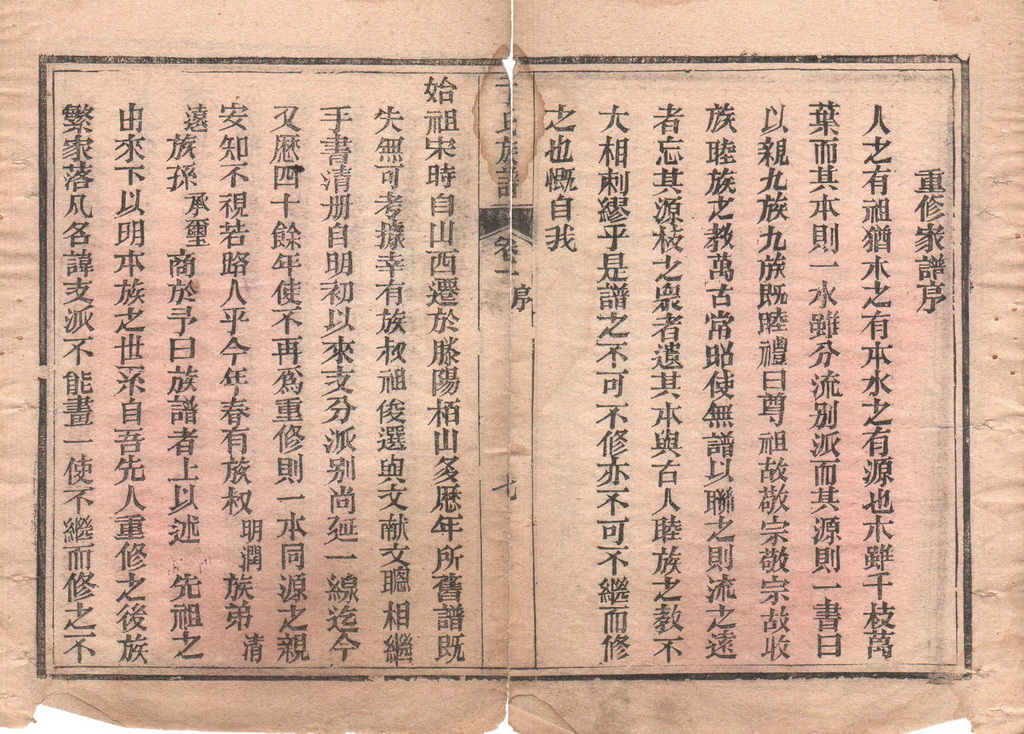 重修家譜序
人之有祖猶木之有本水之有源也木雖千枝萬
葉而其本則一水雖分流別派而其源則一書曰
以親九族九族既睦禮曰尊祖故敬宗敬宗故收
族睦族之教萬古常昭使無譜以聯之則流之遠
者忘其源枝之衆者遺其本與古人睦族之教不
大相刺繆乎是譜之不可不修亦不可不繼而修
之也慨自我
氏族譜
卷一
序
七
始祖宋時自山西遷於滕陽栢山多歷年所舊譜既
失無可考據幸有族叔祖俊選與文献文聰相繼
手書清册自明初以來支分派别尚延一線迄今
又歷四十餘年使不再爲重修則一本同源之親
安知不視若路人乎今年春有族叔明潤族弟清
遠族孫承璽商於予曰族譜者上以述 先祖之
由來下以明本族之世系自吾先人重修之後族
繁家落凡名諱支派不能畫一使不繼而修之不